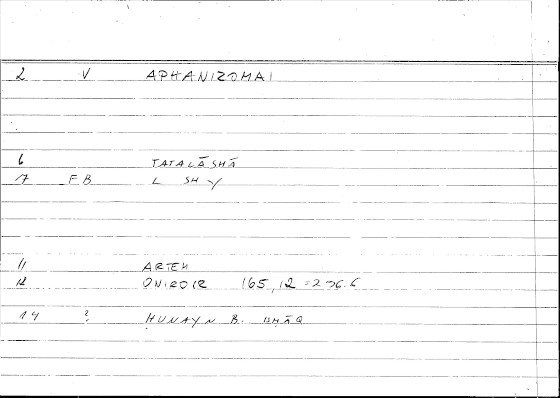 2 V APHANIZOMAI
6 TATALĀSHĀ
7 FB L SH Y
11 ARTEM
12 ONIROCR 165,12 = 296.6
14 ? ḤUNAYN B. ISḤĀQ